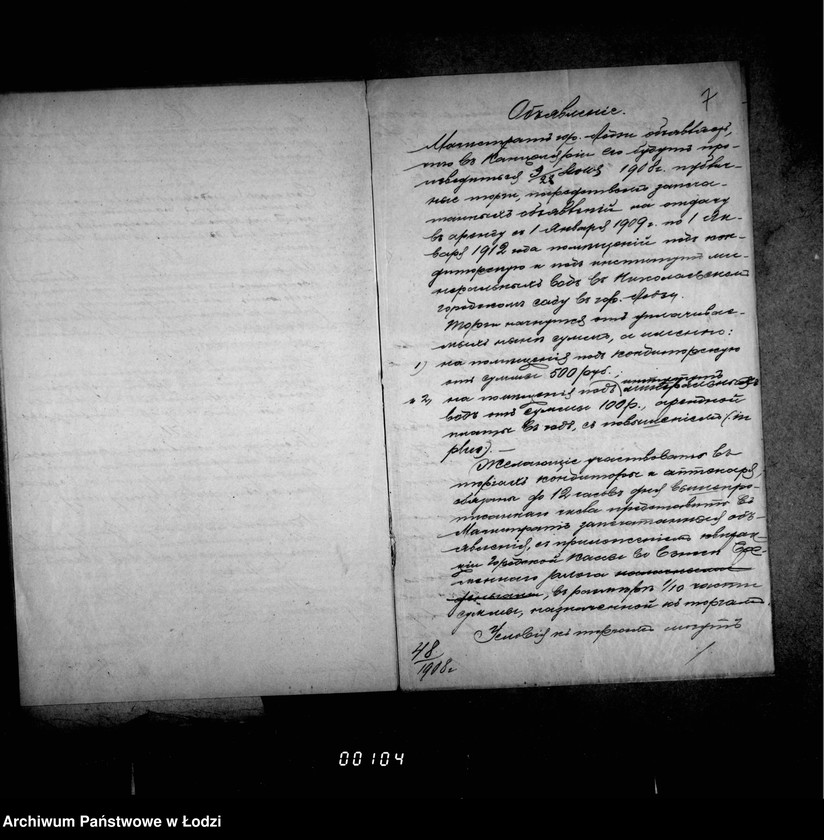 7
Объявленіе.
Магистратъ гор. Лодзи объявляетъ,
что въ Канцеляріи его будутъ про-
изводиться 9/22 1908 г. публич-
ные торги, посредствомъ запеча-
танныхъ объявленій на отдачу
въ аренду съ 1 Января 1909 г. по 1 Ян-
варя 1912 года помѣщеній подъ кон-
диторскую и подъ институтъ ми-
неральныхъ водъ въ Николаевскомъ
городскомъ саду въ гор. Лодзи.
Торги начнутся отъ уплачивае-
мыхъ нынѣ суммъ, а именно:
1) на помѣщенія подъ кондиторскую
отъ суммы 500 руб.;
и 2) на помѣщенія подъ институтъ минеральныхъ
водъ отъ суммы 100 р., арендной
платы въ годъ, съ повышеніемъ (in
plus). —
Желающіе участвовать въ
торгахъ кондиторы и аптекаря
обязаны до 12 часовъ дня вышепро-
писаннаго числа представить въ
Магистратъ запечатанныя объ-
явленія, съ приложеніемъ квитан-
ціи Городской Кассы во взносѣ вре-
меннаго залога
, въ размѣрѣ 1/10 части
суммы, назначенной къ торгамъ.
Условія къ торгамъ могутъ
48
1908 г
00104
Archiwum Państwowe w Łodzi